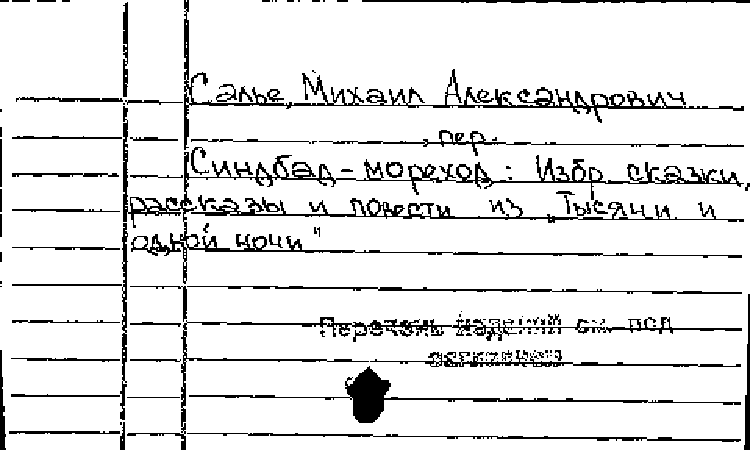 Салье, Михаил Александрович
, пер.
Синдбад-мореход: Избр. сказки,
рассказы и повести из „Тысячи и
одной ночи"
Перечень изданий см. под
основной